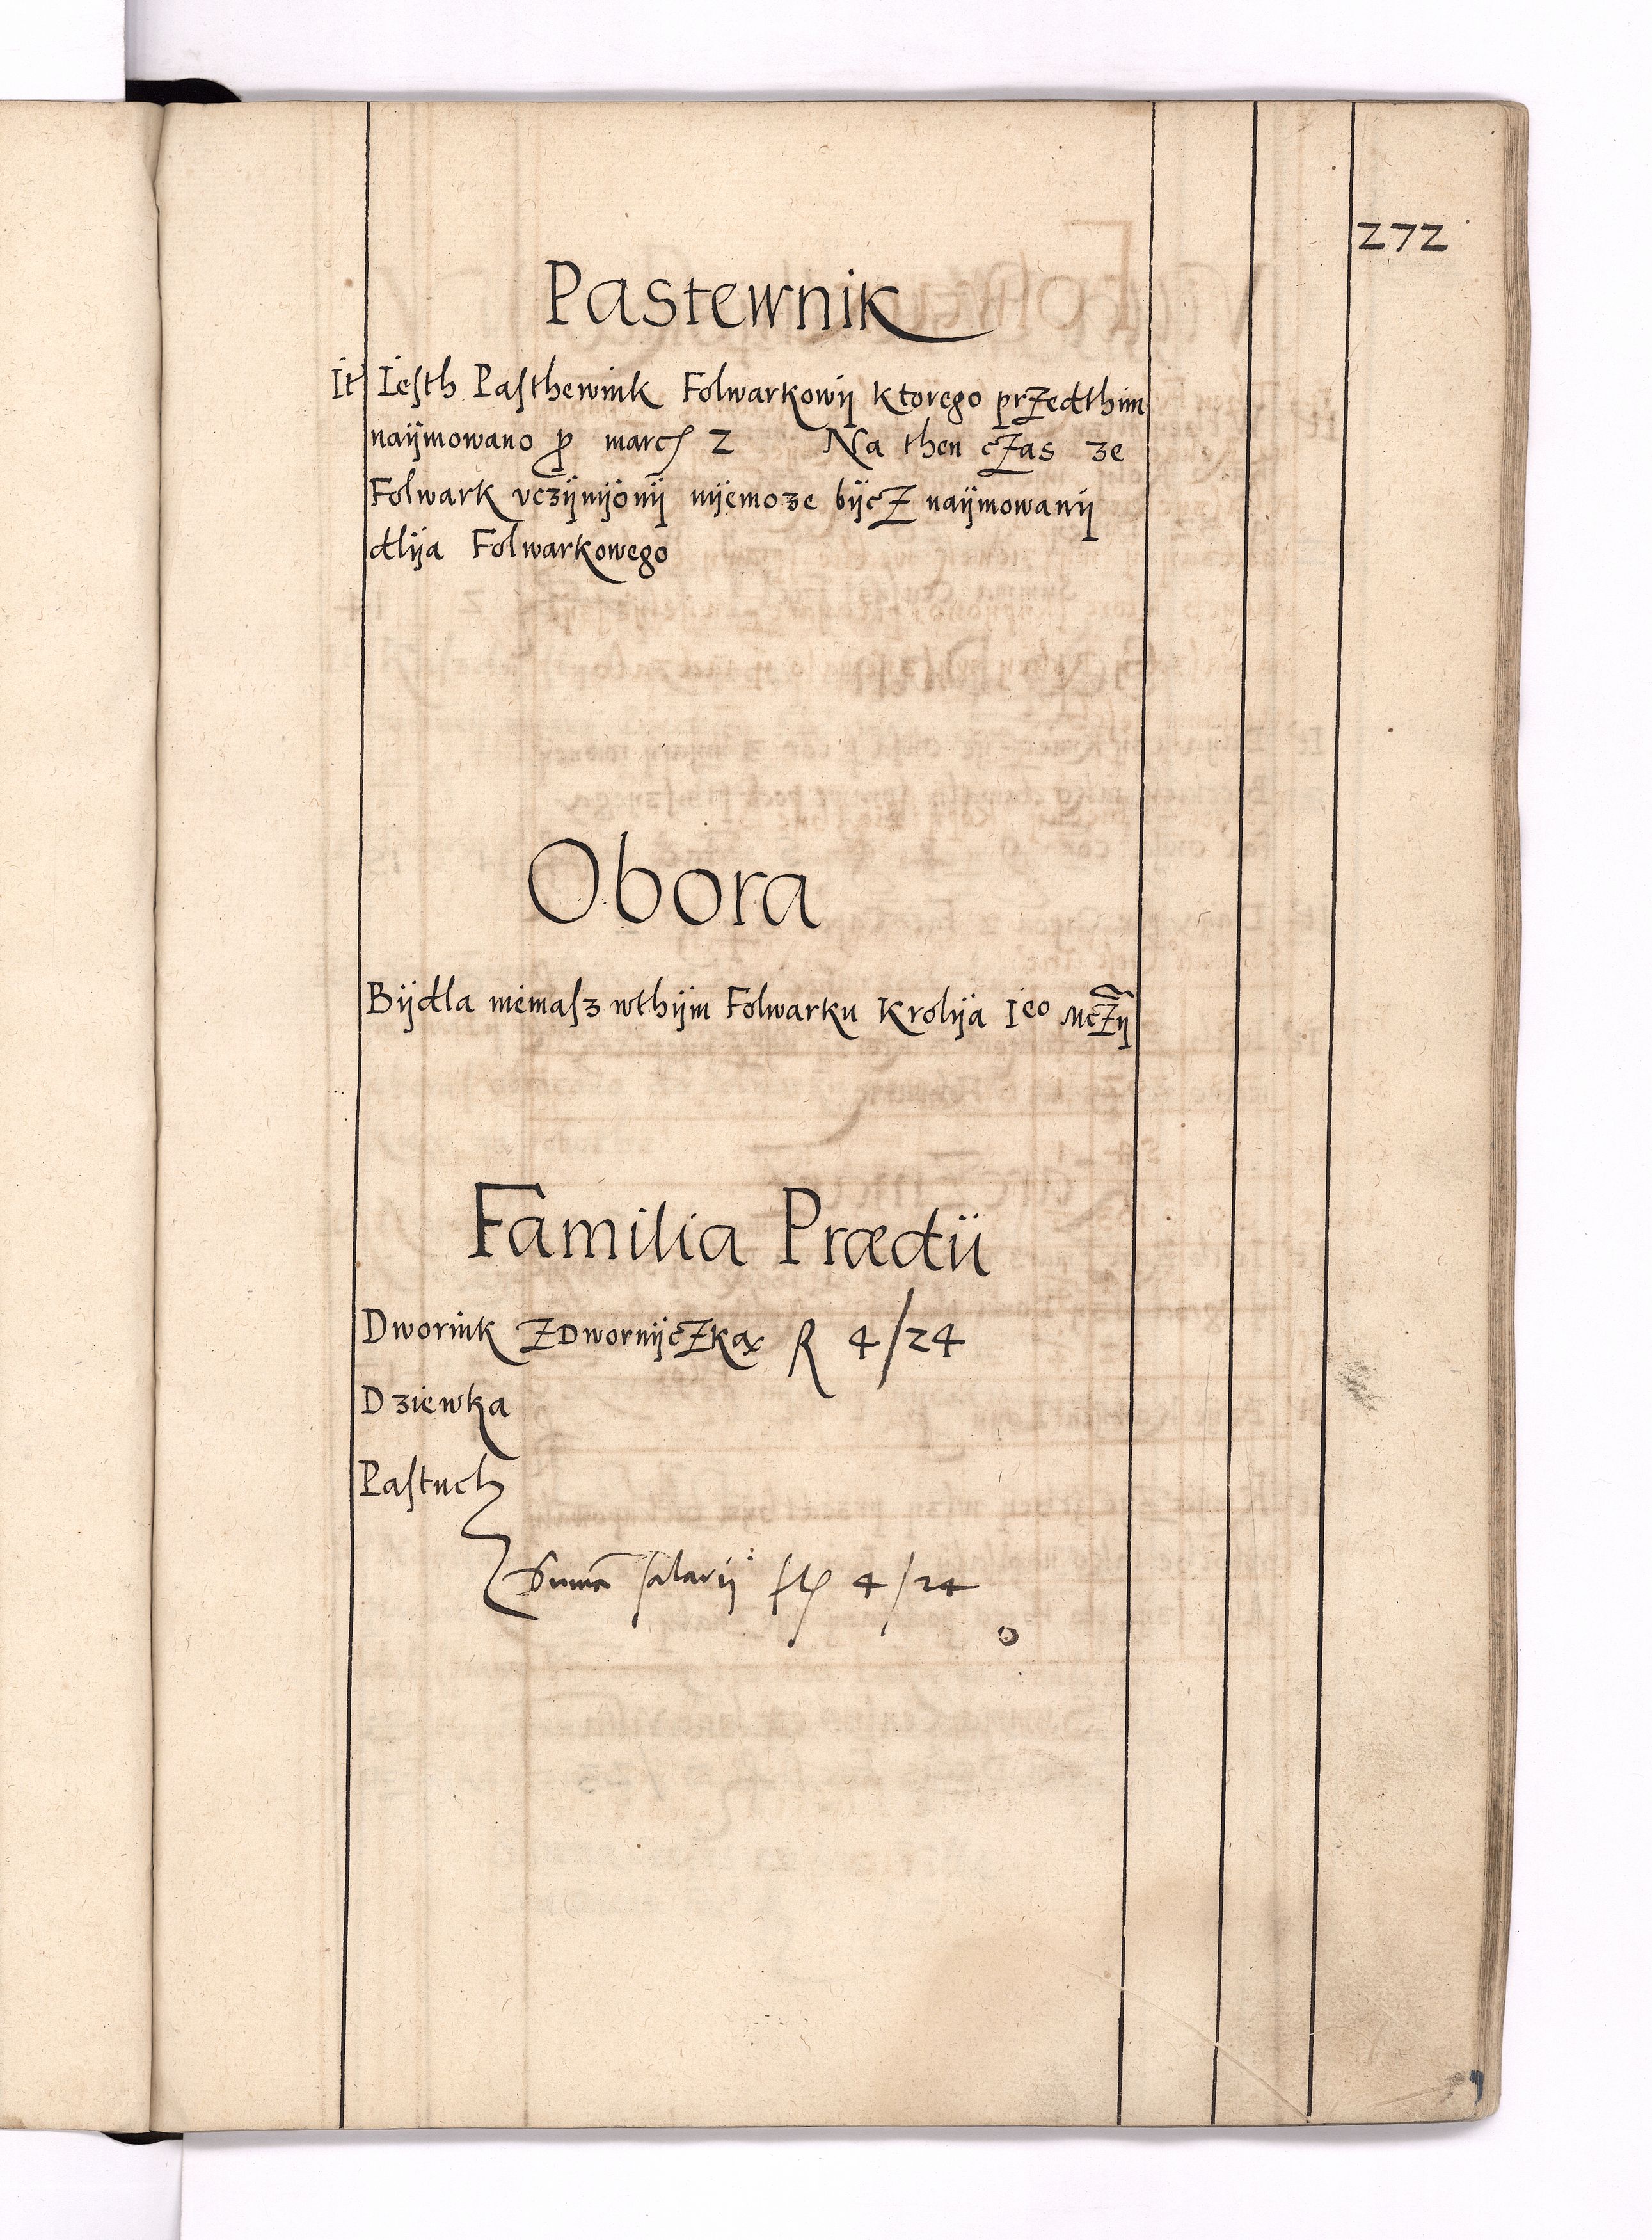 272
Pastewnik
It Iesth Pasthewnik Folwarkowÿ ktorego przedthim
naÿmowano p marcs 2 Na then czas ze
Folwark vczÿnÿonÿ nÿemoze bÿcz naÿmowanÿ
dlÿa Folwarkowego
Obora
Bÿdla niemasz wthÿm Folwarku Krolÿa Ieo Mczÿ
Familia Prædii
Dwornik z Dwornÿczką R 4/24
Dziewka
Pastuch
Suma salarÿ fl 4/24